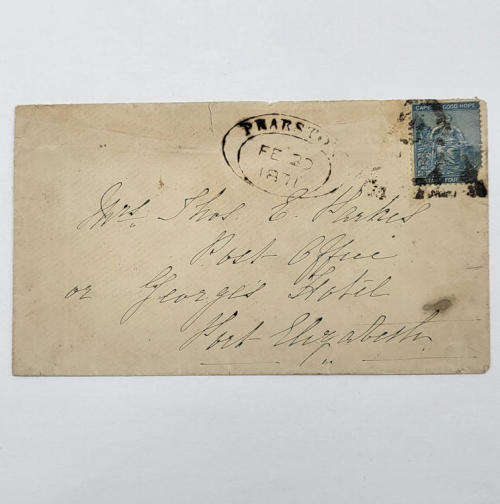 CAPE OF GOOD HOPE
FOUR
PEARSTON
FE 20
1871
Mrs. Thos. E. Parkes
Post Office
or Georges Hotel
Port Elizabeth